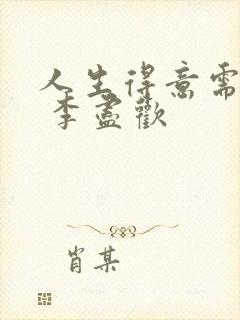 人生得意需
李尽歡
肖某